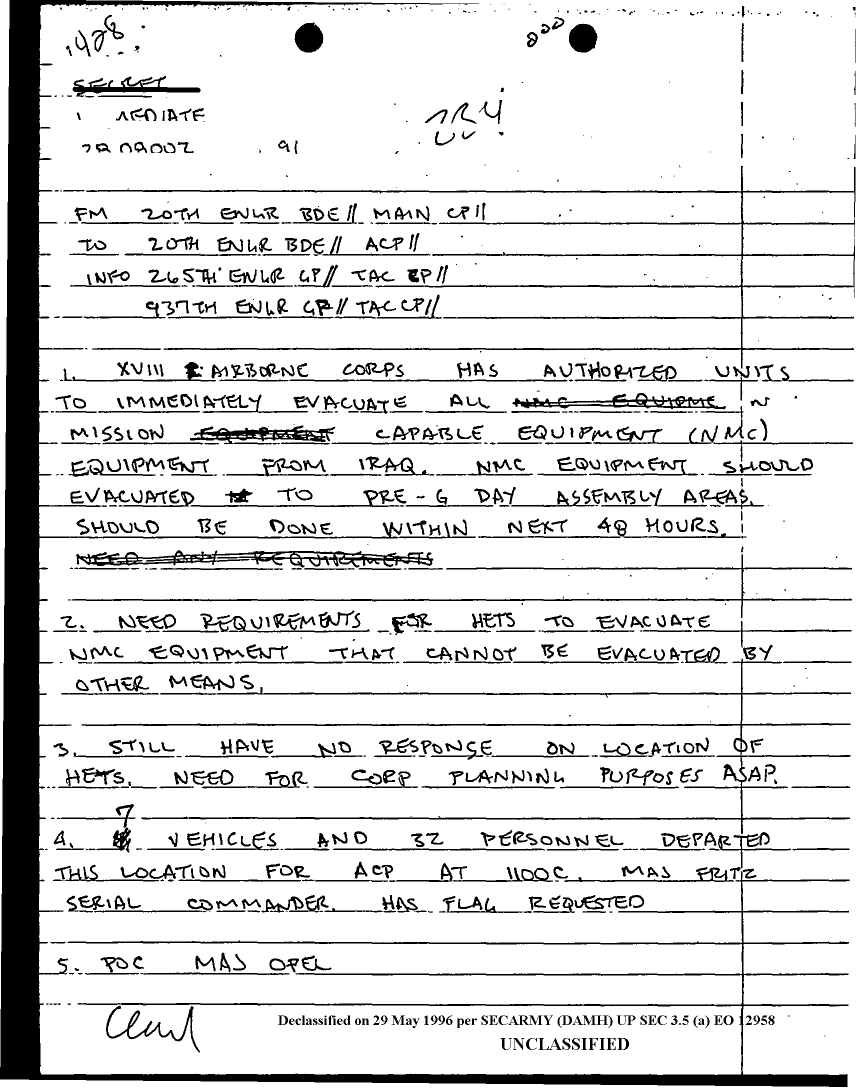 1428
SECRET
MEDIATE
91
FM 20TH ENGR BDE// MAIN CP//
TO 20TH ENGR BDE// ACP//
INFO 265TH ENGR GP// TAC CP//
937TH ENGR GP// TAC CP//
1. XVIII AIRBORNE CORPS HAS AUTHORIZED UNITS
TO IMMEDIATELY EVACUATE ALL NMC EQUIPME N
MISSION EQUIPMENT CAPABLE EQUIPMENT (NMC)
EQUIPMENT FROM IRAQ. NMC EQUIPMENT SHOULD
EVACUATED TO PRE-G DAY ASSEMBLY AREAS.
SHOULD BE DONE WITHIN NEXT 48 HOURS.
NEED ANY REQUIREMENTS
2. NEED REQUIREMENTS FOR HETS TO EVACUATE
NMC EQUIPMENT THAT CANNOT BE EVACUATED BY
OTHER MEANS.
3. STILL HAVE NO RESPONSE ON LOCATION OF
HETS. NEED FOR CORP PLANNING PURPOSES ASAP.
4. 7 VEHICLES AND 32 PERSONNEL DEPARTED
THIS LOCATION FOR ACP AT 1100C. MAJ FRITZ
SERIAL COMMANDER. HAS FLAG REQUESTED
5. POC MAJ OPEL
Declassified on 29 May 1996 per SECARMY (DAMH) UP SEC 3.5 (a) EO 12958
UNCLASSIFIED